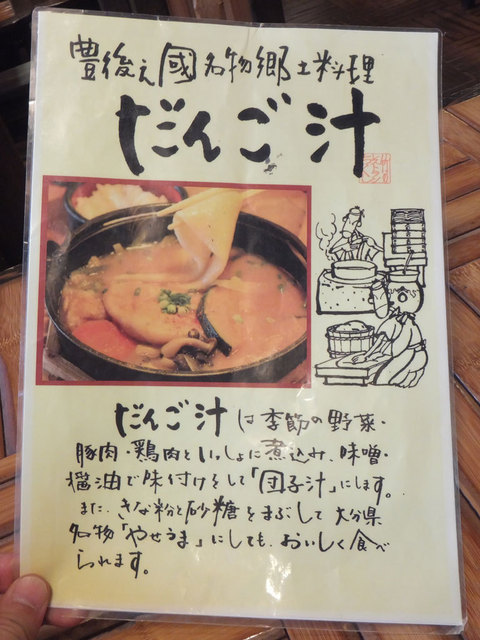 豊後之國名物郷土料理
だんご汁
だんご汁は季節の野菜・
豚肉・鶏肉といっしょに煮込み、味噌・
醤油で味付けをして「団子汁」にします。
また、きな粉と砂糖をまぶして大分県
名物「やせうま」にしても、おいしく食べ
られます。